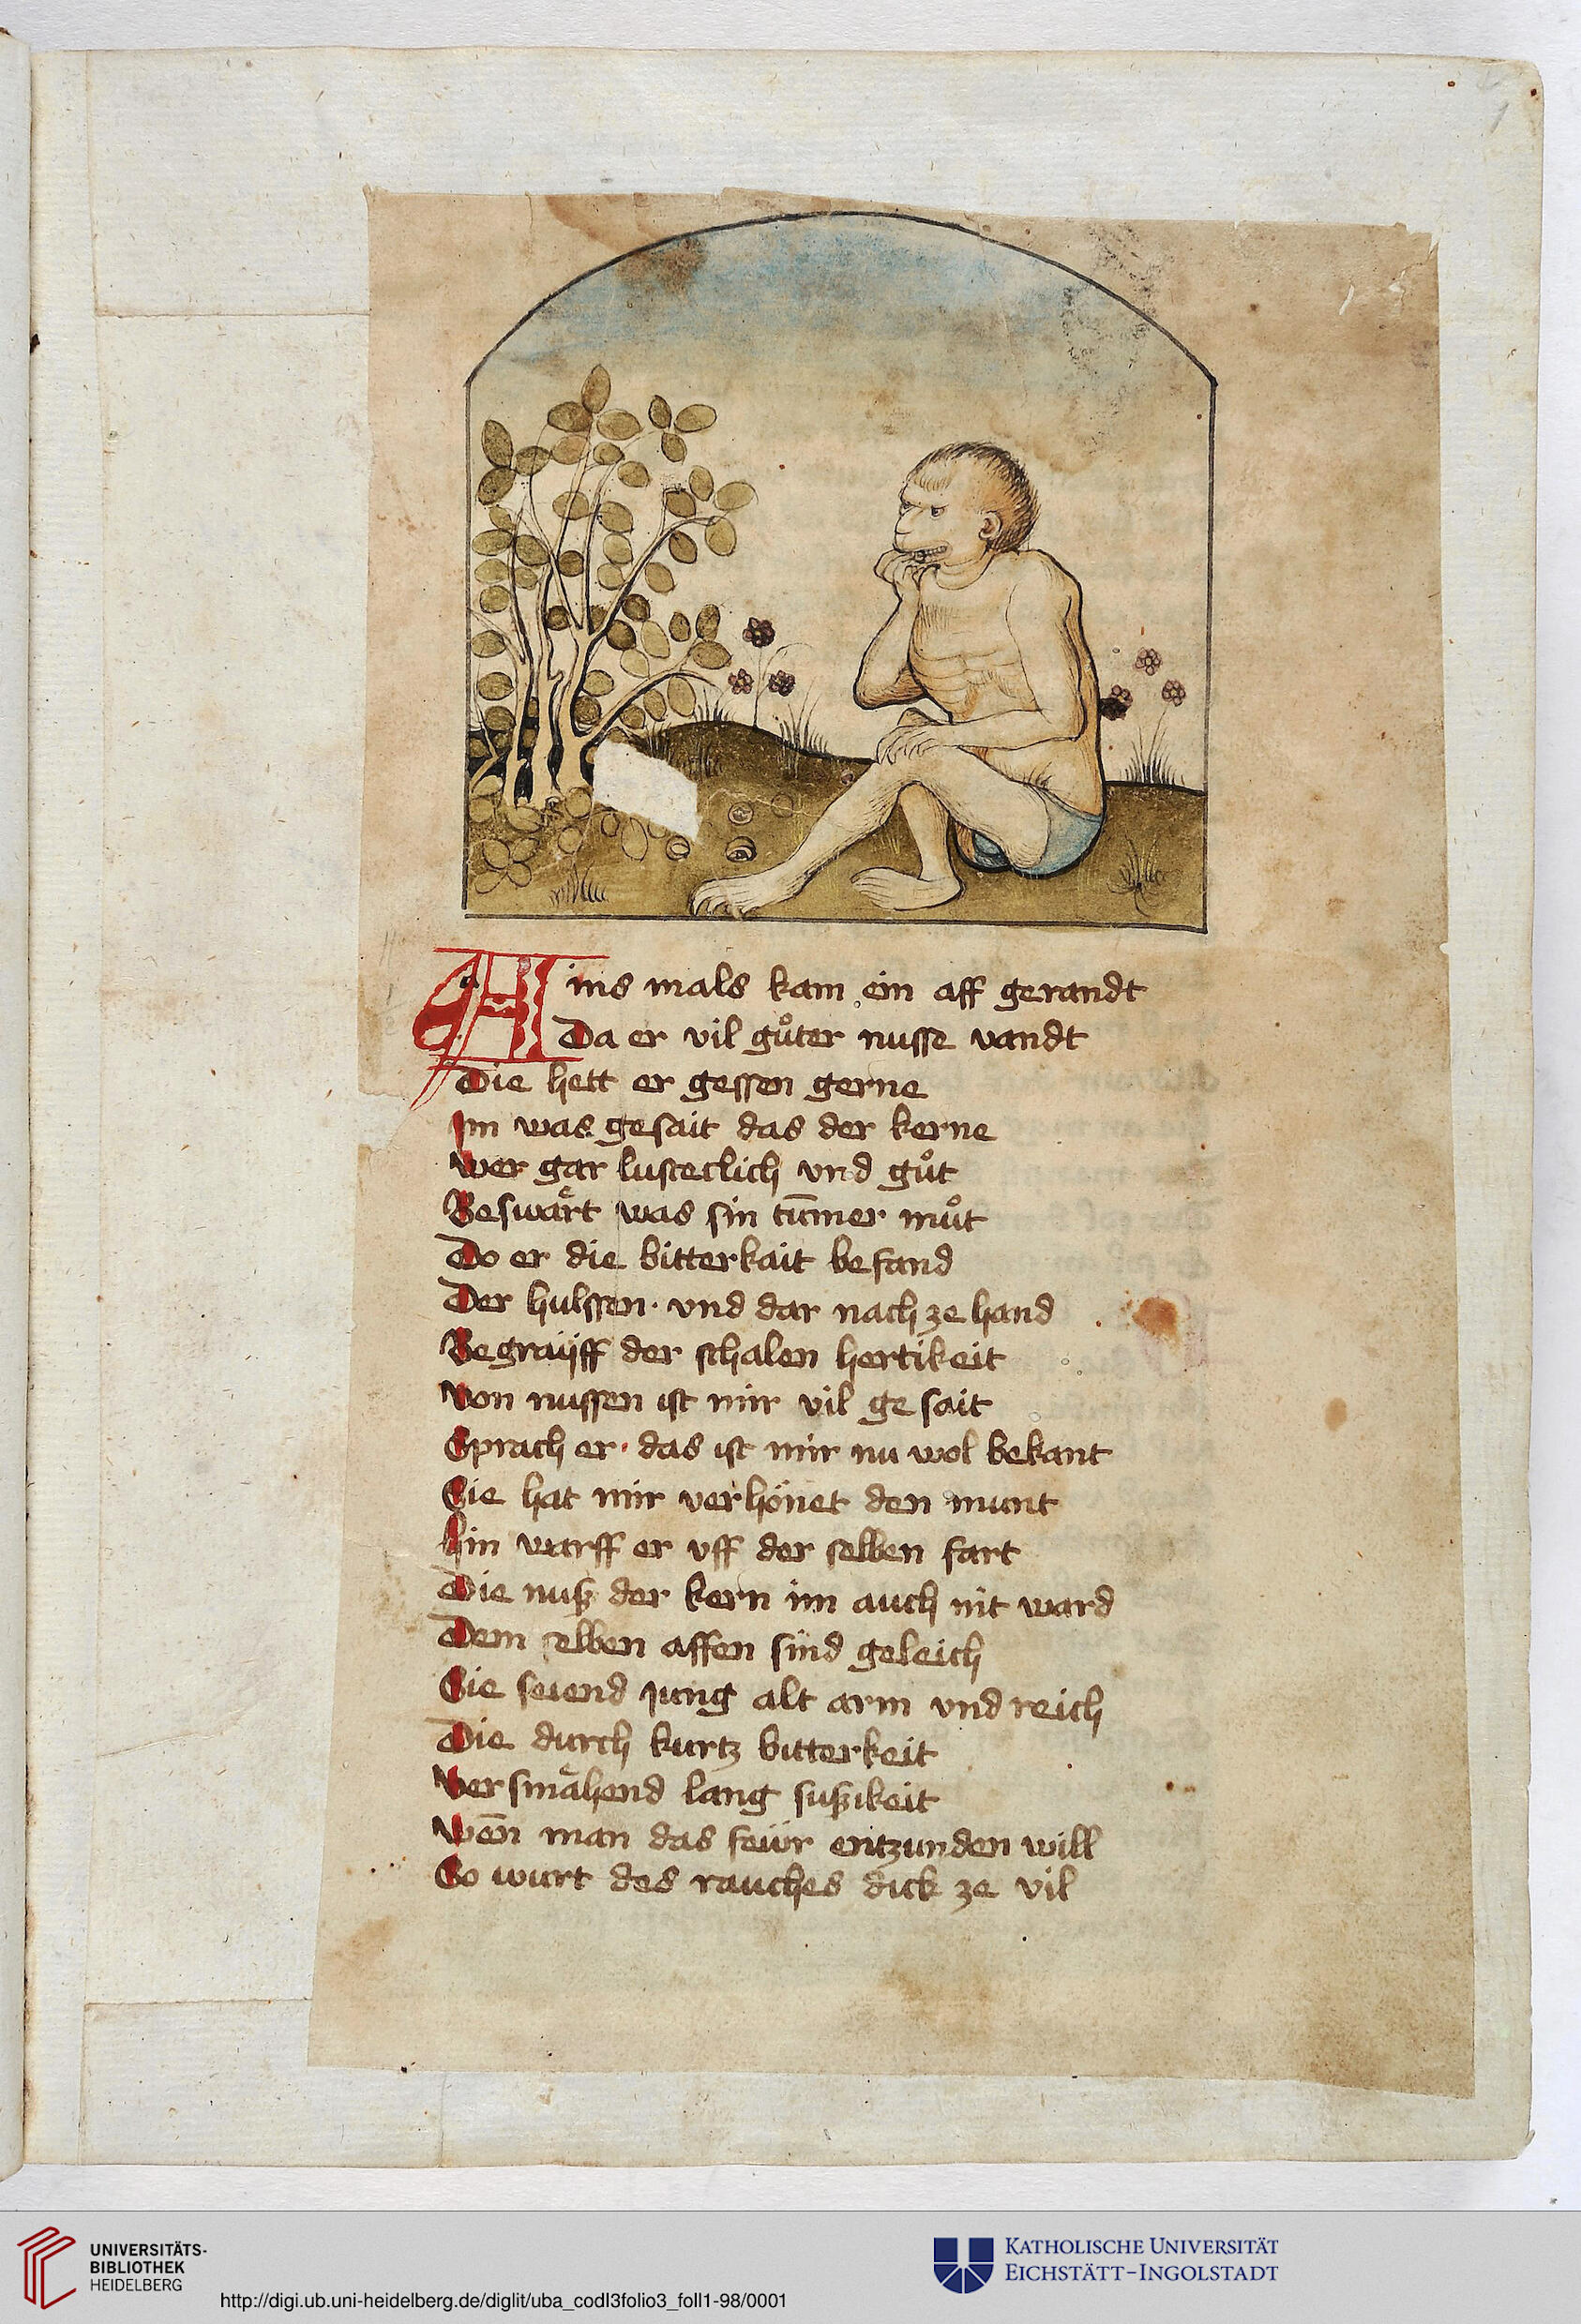 Ains mals kam ein aff gerandt
Da er vil gůter nusse vandt
Die hett er gessen gerne
Im was gesait das der kerne
Wer gar lusteclich vnd gůt
Beswaͤrt was sin tūmer můt
Do er die bitterkait befand
Der hulssen · vnd dar nach ze hand
Begraiff der schalen hertikeit
Von nussen ist mir vil ge sait
Sprach er · das ist mir nu wol bekant
Sie hat mir verhönet den munt
Hin warff er vff der selben fart
Die nuß der kern im auch nit ward
Dem selben affen sind geleich
Sie seiend jung alt arm vnd reich
Die durch kurtz bitterkeit
Versmaͤhend lang sußikeit
Wen̄ man das feür entzunden will
So wurt des rauches dick ze vil
UNIVERSITÄTS-
BIBLIOTHEK
HEIDELBERG
http://digi.ub.uni-heidelberg.de/diglit/uba_codI3folio3_foll1-98/0001
KATHOLISCHE UNIVERSITÄT
EICHSTÄTT-INGOLSTADT